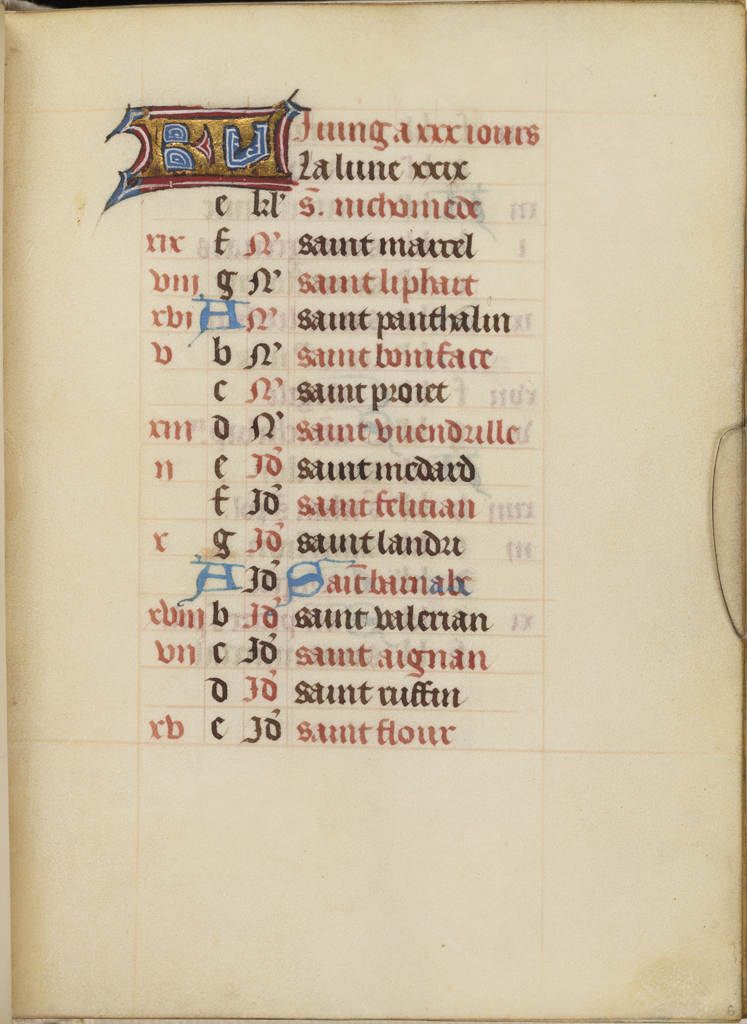 Juing a xxx iours
La lune xxix
e kl' s. nichomede
xix f N' saint marcel
viii g N' saint liphart
xvi A N' saint panthalin
v b N' saint boniface
c N' saint proiet
xiii d N' saint vuendrille
ii e Id' saint medard
f Id' saint felician
x g Id' saint landri
A Id' Sait barnabe
xviii b Id' saint valerian
vii c Id' saint aignan
d Id' saint ruffin
xv e Id' saint flour
6